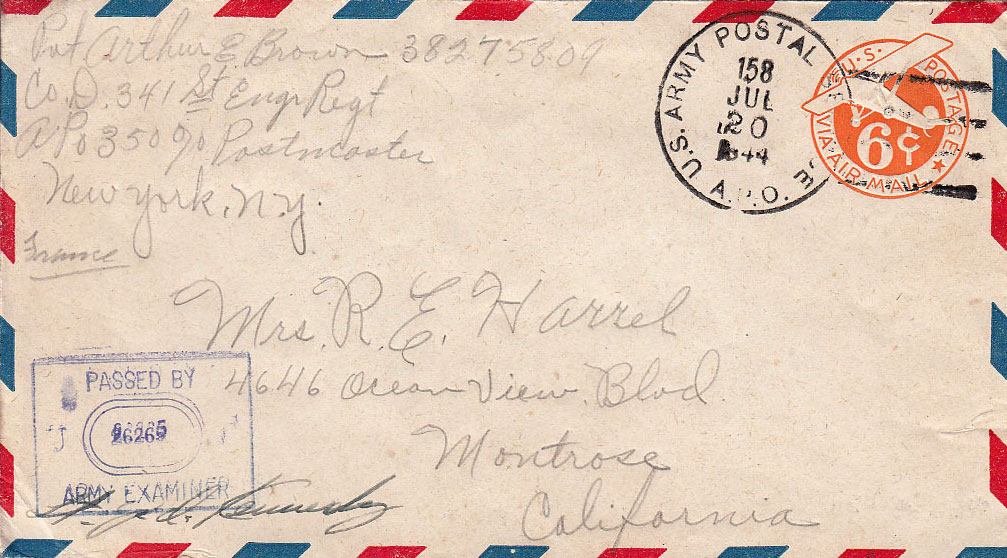 Pvt Arthur E. Brown 38275809
Co. D. 341 St Engr Regt
APO 350 c/o Postmaster
New York, N.Y.
France
U.S. ARMY POSTAL
A.P.O.
158
JUL
20
1944
U.S. POSTAGE
6¢
VIA AIR MAIL
Mrs. R. E. Harrel
4646 Ocean View Blvd.
Montrose
California
PASSED BY
ARMY EXAMINER
Kennedy